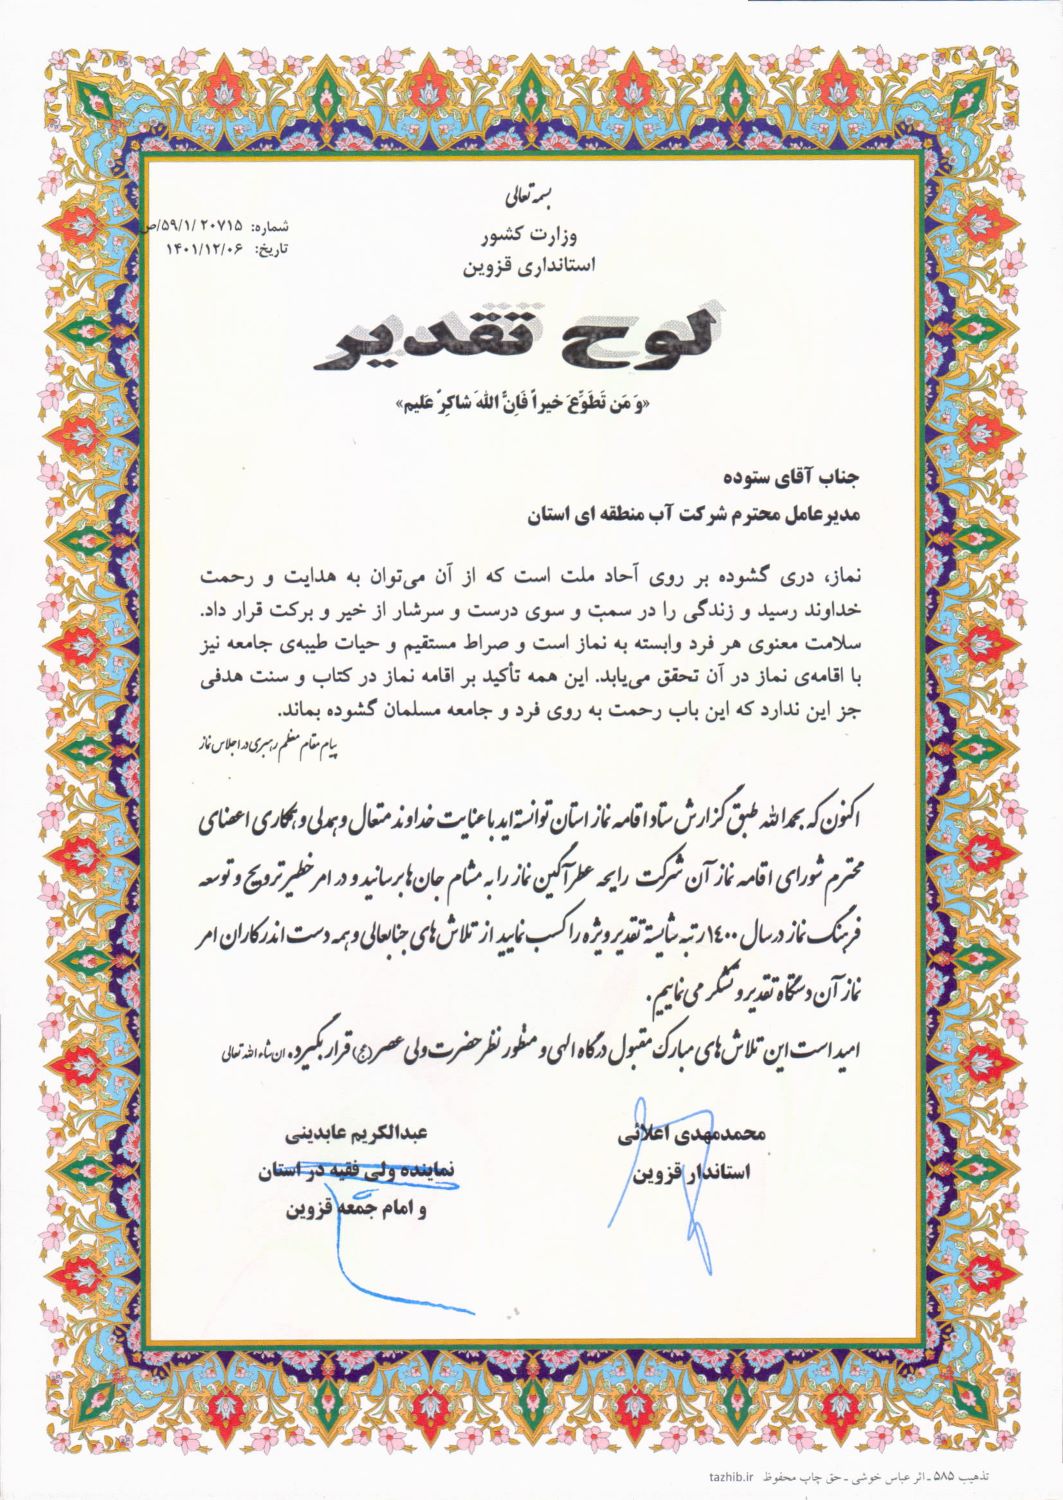 بسمه تعالی
وزارت کشور
استانداری قزوین
شماره: ۲۰۷۱۵ /۵۹/۱/ص
تاریخ: ۱۴۰۱/۱۲/۰۶
لوح تقدیر
«وَ مَن تَطَوَّعَ خیراً فَاِنَّ اللهَ شاکِرٌ عَلیم»
جناب آقای ستوده
مدیرعامل محترم شرکت آب منطقه ای استان
نماز، دری گشوده بر روی آحاد ملت است که از آن می‌توان به هدایت و رحمت
خداوند رسید و زندگی را در سمت و سوی درست و سرشار از خیر و برکت قرار داد.
سلامت معنوی هر فرد وابسته به نماز است و صراط مستقیم و حیات طیبه‌ی جامعه نیز
با اقامه‌ی نماز در آن تحقق می‌یابد. این همه تأکید بر اقامه نماز در کتاب و سنت هدفی
جز این ندارد که این باب رحمت به روی فرد و جامعه مسلمان گشوده بماند.
پیام مقام معظم رهبری در اجلاس نماز
اکنون که بحمدالله طبق گزارش ستاد اقامه نماز استان توانسته اید با عنایت خداوند متعال و همدلی و همکاری اعضای
محترم شورای اقامه نماز آن شرکت رایحه عطرآگین نماز را به مشام جان ها برسانید و در امر خطیر ترویج و توسعه
فرهنگ نماز در سال ۱۴۰۰ رتبه شایسته تقدیر ویژه را کسب نمایید از تلاش های جنابعالی و همه دست اندرکاران امر
نماز آن دستگاه تقدیر و تشکر می نماییم.
امید است این تلاش های مبارک مقبول درگاه الهی و منظور نظر حضرت ولی عصر(عج) قرار بگیرد. ان شاء الله تعالی
محمدمهدی اعلائی
استاندار قزوین
عبدالکریم عابدینی
نماینده ولی فقیه در استان
و امام جمعه قزوین
تذهیب ۵۸۵ ـ اثر عباس خوشی ـ حق چاپ محفوظ tazhib.ir